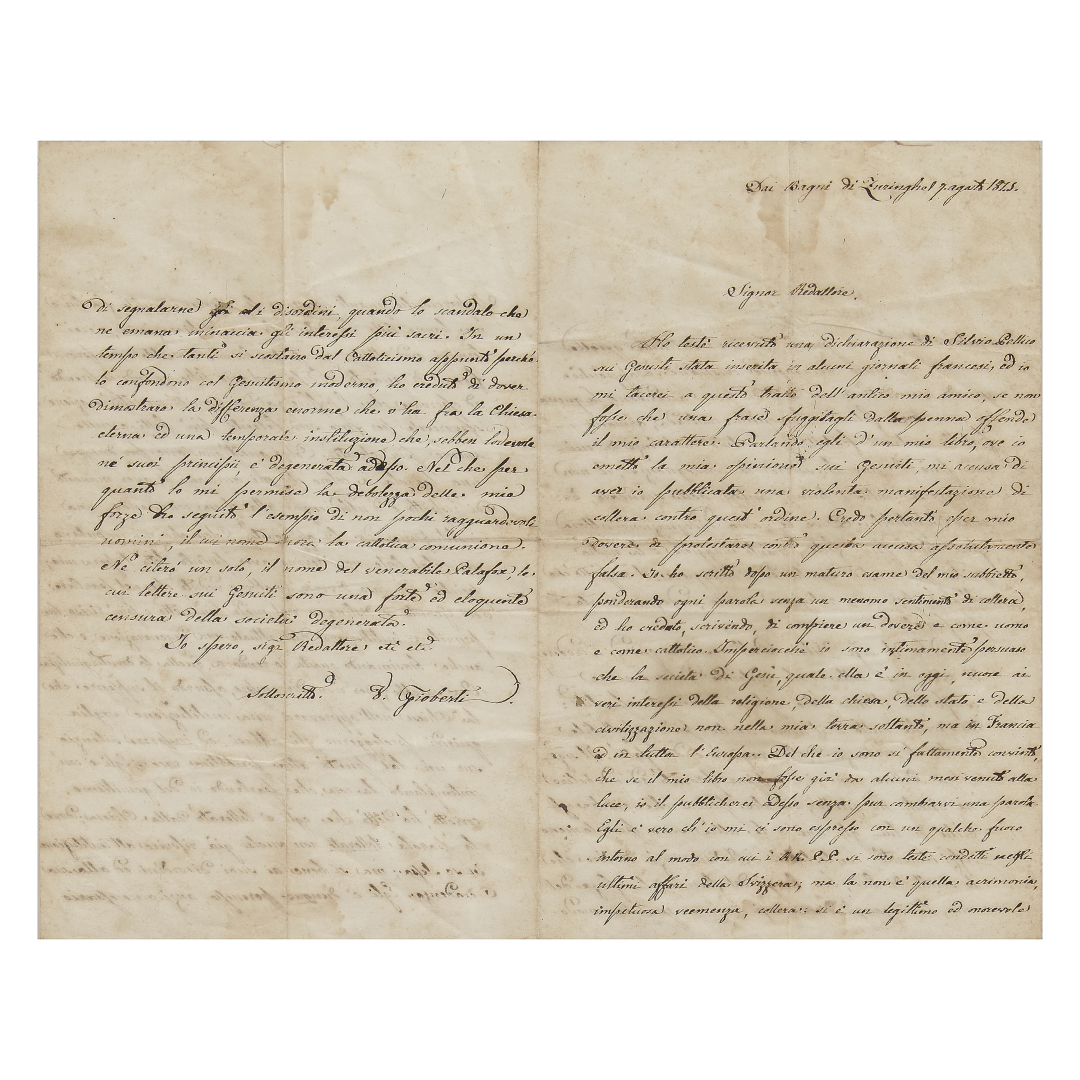 Dai Bagni di Zuringhel 7. agosto 1845.
Signor Redattore.
Ho testè ricevuto una dichiarazione di Silvio Pellico
sui Gesuiti stata inserita in alcuni giornali francesi, ed io
mi tacerei a questo tratto dell'antico mio amico, se non
fosse che una frase sfuggitagli dalla penna offende
il mio carattere. Parlando egli d'un mio libro, ove io
emetto la mia opinione sui Gesuiti, mi accusa di
aver io pubblicata una violenta manifestazione di
collera contro quest'ordine. Credo pertanto esser mio
dovere di protestare contro questa accusa assolutamente
falsa. Io ho scritto dopo un maturo esame del mio subbietto,
ponderando ogni parola senza un menomo sentimento di collera,
ed ho creduto, scrivendo, di compiere un dovere e come uomo
e come cattolico. Imperciocchè io sono intimamente persuaso
che la società di Gesù, quale ella è in oggi, nuoce ai
veri interessi della religione, della chiesa, dello stato e della
civilizzazione non nella mia terra soltanto, ma in Francia
ed in tutta l'Europa. Del che io sono sì fattamente convinto,
che se il mio libro non fosse già da alcuni mesi venuto alla
luce, io il pubblicherei adesso senza pur cambiarvi una parola.
Egli è vero ch'io mi ci sono espresso con un qualche fuoco
intorno al modo con cui i RR. P.P. si sono testè condotti negli
ultimi affari della Svizzera; ma la non è quella acrimonia,
impetuosa veemenza, collera: si è un legittimo ed onorevole
di segnalarne i disordini, quando lo scandalo che
ne emana minaccia gli interessi più sacri. In un
tempo che tanti si scostano dal Cattolicismo appunto perchè
lo confondono col Gesuitismo moderno, ho creduto di dover
dimostrare la differenza enorme che v'ha fra la Chiesa
eterna ed una temporale instituzione che, sebben lodevole
ne' suoi principii, è degenerata adesso. Nel che per
quanto lo mi permise la debolezza delle mie
forze ho seguito l'esempio di non pochi ragguardevoli
uomini, il cui nome onora la cattolica comunione.
Nè citerò un solo, il nome del venerabile Palafox, le
cui lettere sui Gesuiti sono una forte ed eloquente
censura della società degenerata.
Io spero, sigr Redattore etc etc.
Sottoscritto. V. Gioberti.